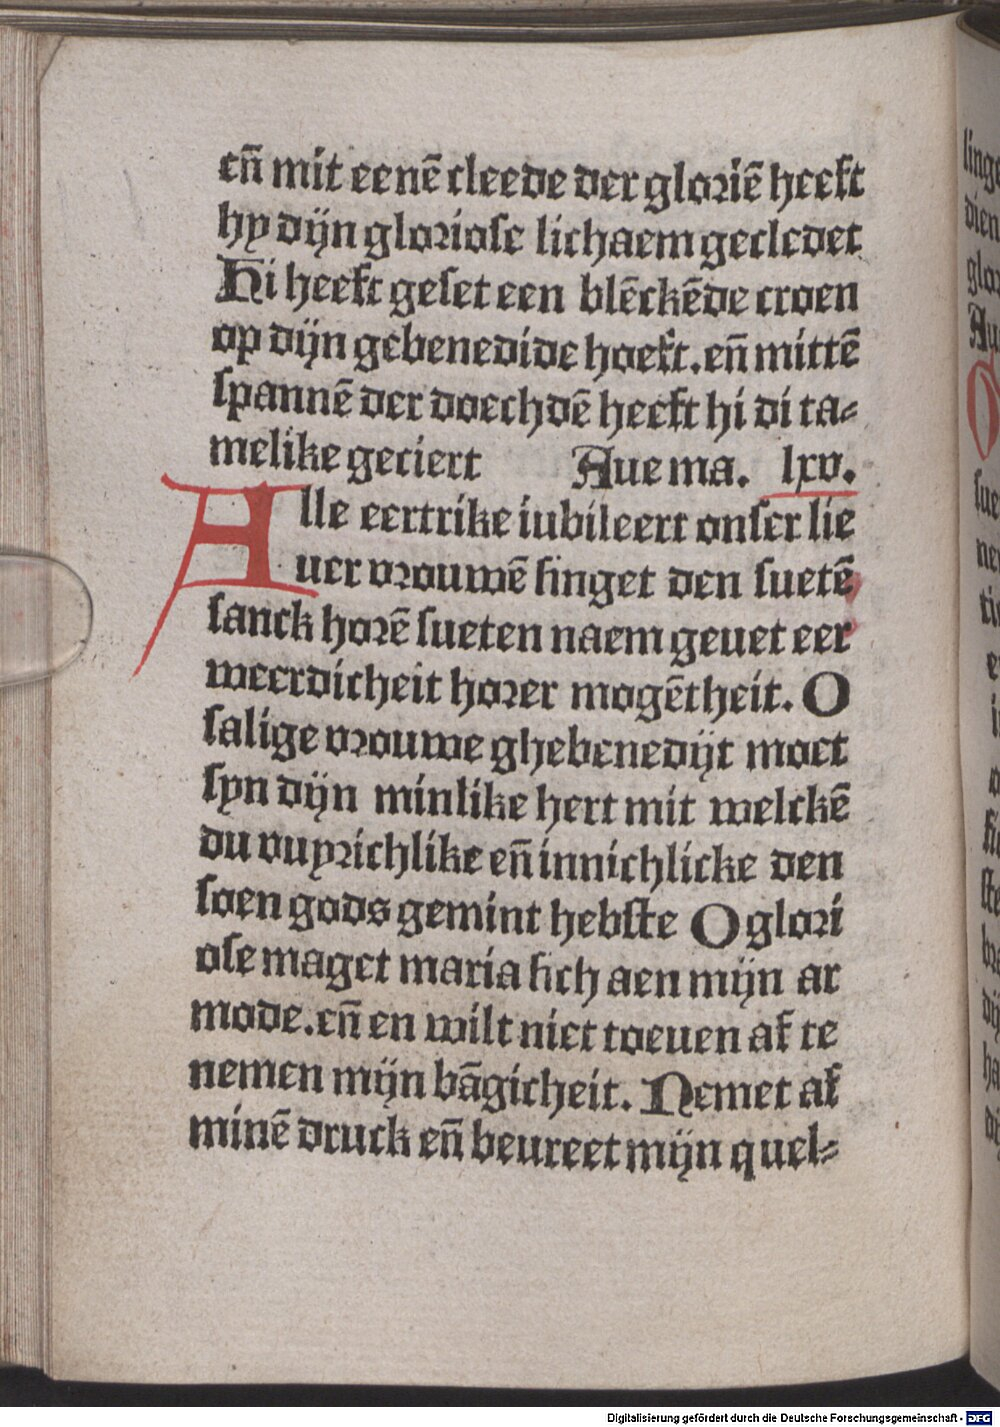 eñ mit eenē cleede der gloriē heeft
hy dijn gloriose lichaem gecledet
Hi heeft geset een blēckēde croen
op dijn gebenedide hoeft. eñ mittē
spannē der doechdē heeft hi di ta⸗
melike geciert Aue ma. lxv.
Alle eertrike iubileert onser lie
uer vrouwē singet den suetē
sanck horē sueten naem geuet eer
weerdicheit horer mogētheit. O
salige vrouwe ghebenedijt moet
syn dijn minlike hert mit welckē
du vuyrichlike eñ innichlicke den
soen gods gemint hebste O glori
ose maget maria sich aen mijn ar
mode. eñ en wilt niet toeuen af te
nemen mijn bāgicheit. Nemet af
minē druck eñ beureet mijn quel⸗
linge
dien
Digitalisierung gefördert durch die Deutsche Forschungsgemeinschaft - DFG